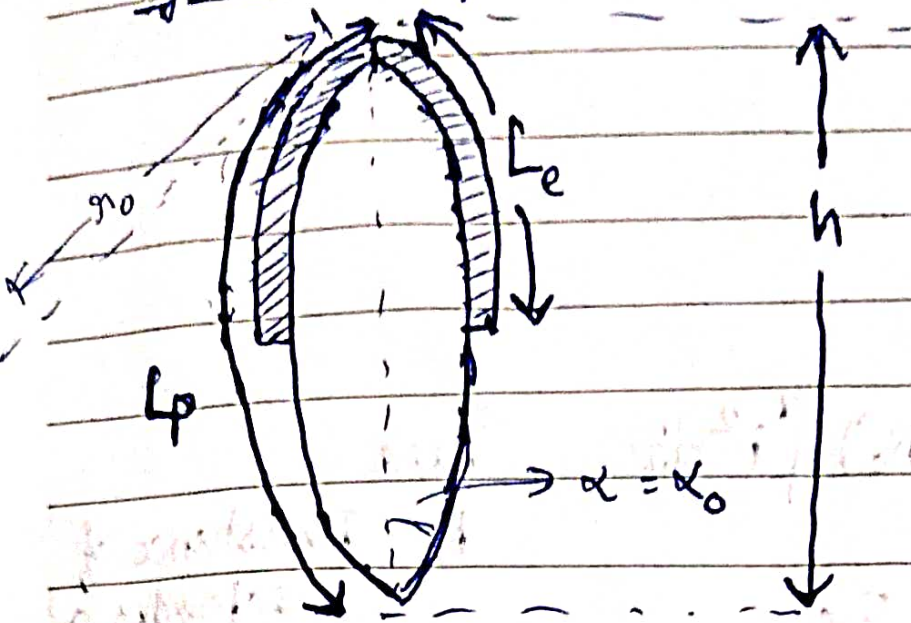 r₀
Lₑ
h
Lₚ
α = α₀